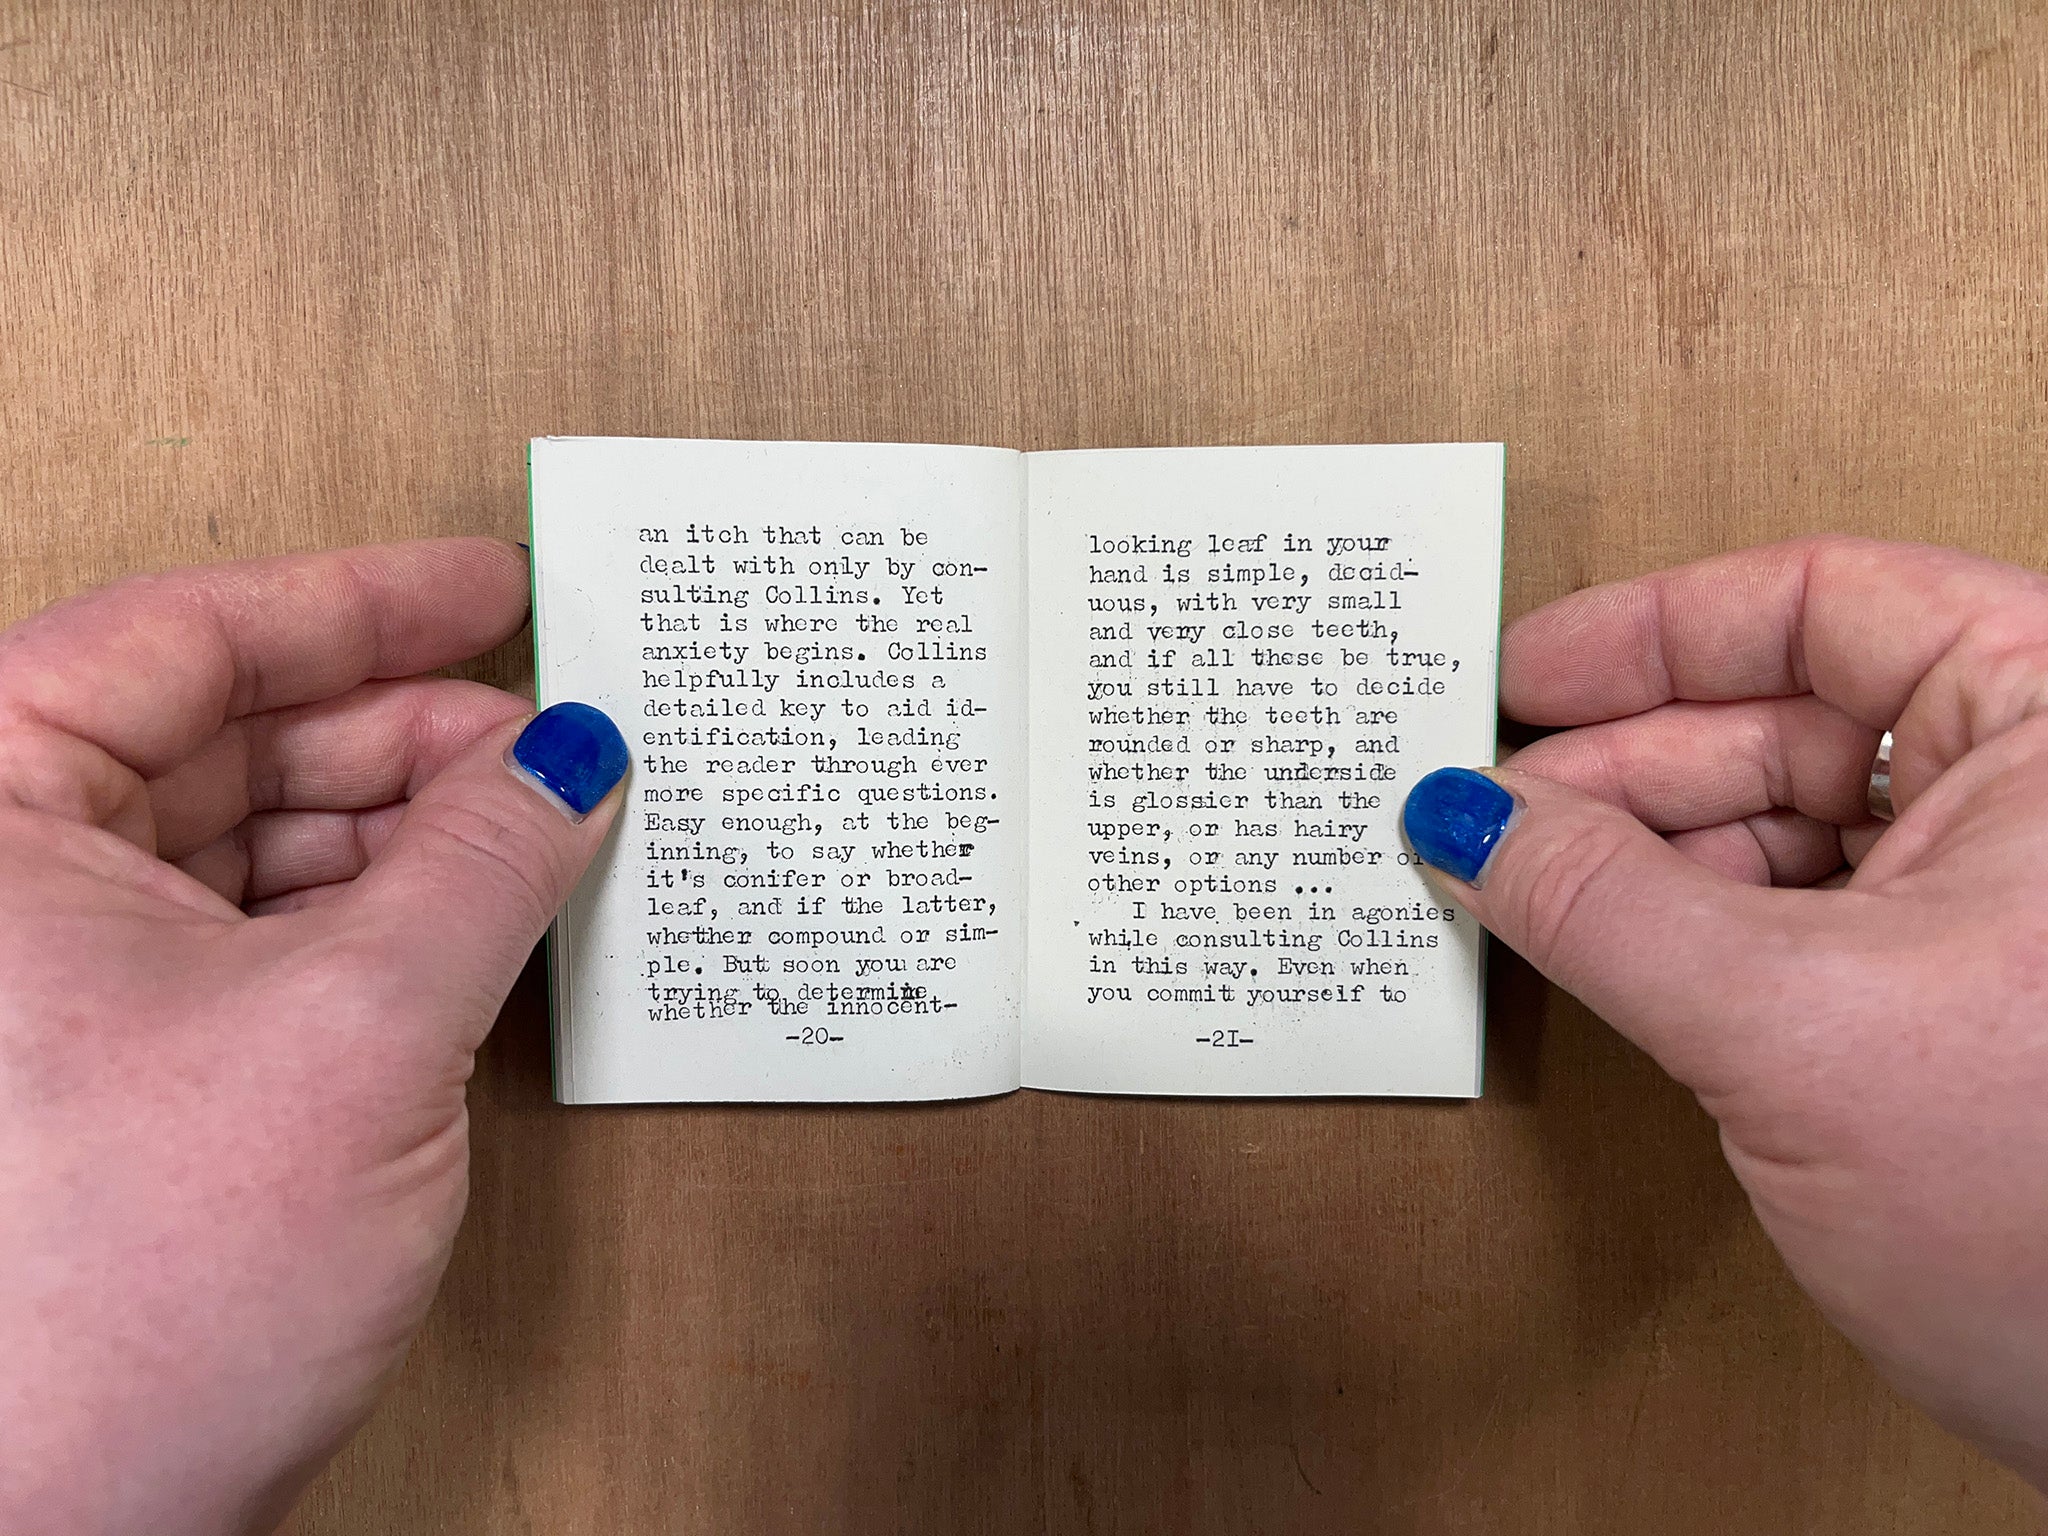 an itch that can be
dealt with only by con-
sulting Collins. Yet
that is where the real
anxiety begins. Collins
helpfully includes a
detailed key to aid id-
entification, leading
the reader through ever
more specific questions.
Easy enough, at the beg-
inning, to say whether
it's conifer or broad-
leaf, and if the latter,
whether compound or sim-
ple. But soon you are
trying to determine
whether the innocent-
-20-
looking leaf in your
hand is simple, decid-
uous, with very small
and very close teeth,
and if all these be true,
you still have to decide
whether the teeth are
rounded or sharp, and
whether the underside
is glossier than the
upper, or has hairy
veins, or any number of
other options ...
I have been in agonies
while consulting Collins
in this way. Even when
you commit yourself to
-2I-